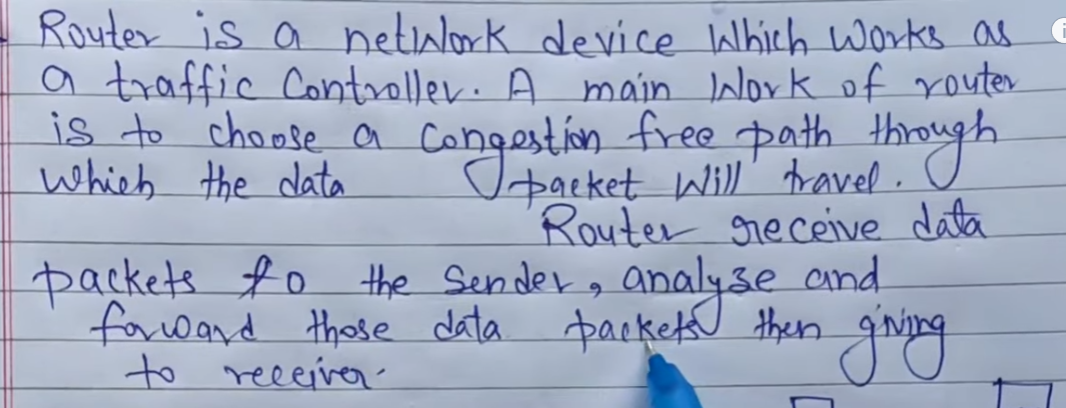 Router is a network device which works as
a traffic controller. A main work of router
is to choose a congestion free path through
which the data packet will travel.
Router receive data
packets to the sender, analyse and
forward those data packets then giving
to receiver.